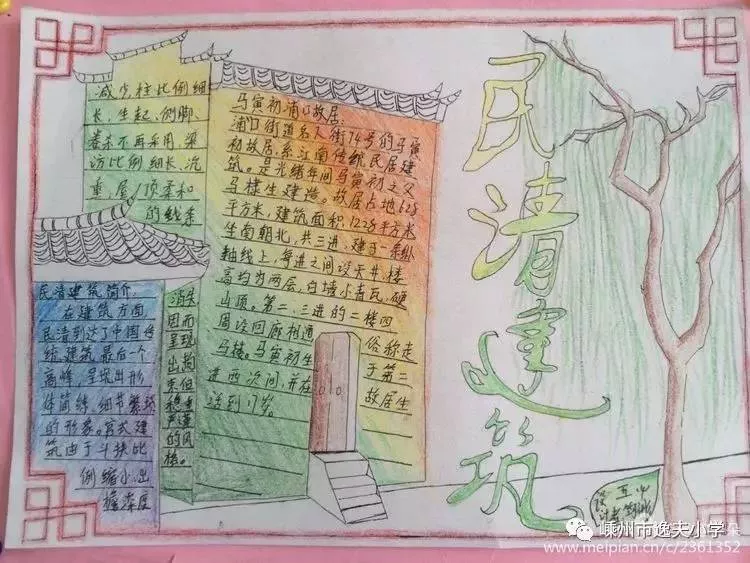 民清建筑
民清建筑简介:
在建筑方面
民清到达了中国传
统建筑最后一个
高峰,呈现出形
体简练,细节繁琐
的形象。官式建
筑由于斗拱比
例缩小,出
檐深度
减少,柱比例细
长,生起、侧脚、
卷杀不再采用,梁
访比例细长,沉
重,层/顶柔和
的线条
消失
因而
呈现
出拘
束但
稳重
严谨
的风
格。
马寅初浦口故居:
浦口街道名人街74号的马寅
初故居,系江南传统民居建
筑。是光绪年间马寅初之父
马棣生建造。故居占地628
平方米,建筑面积1228平方米
坐南朝北,共三进,建于一条
轴线上,每进之间设天井,楼
高均为两层,白墙小青瓦,硬
山顶。第二、三进的二楼四
周设回廊相通 俗称走
马楼。马寅初生 于第二
进西次间,并在 故居生
活到17岁。
嵊州市逸夫小学
www.meipian.cn/c/2361352